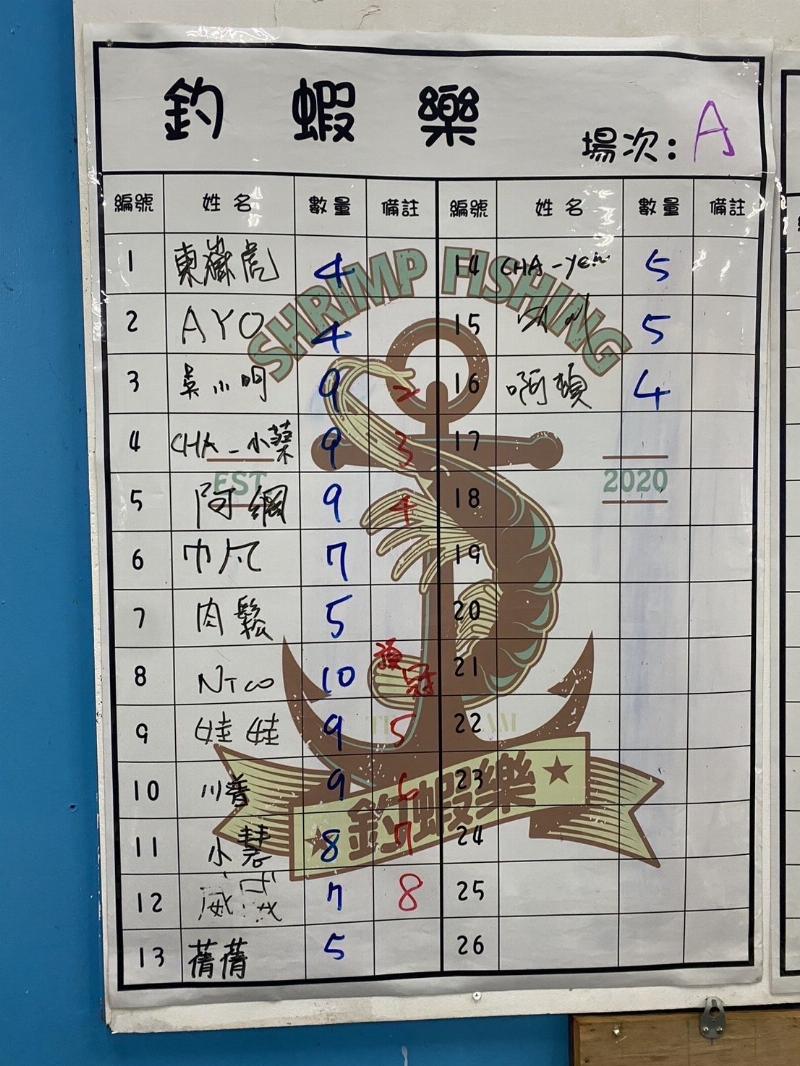 釣 蝦 樂
場次: A
編號 姓名 數量 備註 編號 姓名 數量 備註
1 東嶽虎 4 14 CHA-yen 5
2 AYO 4 15 5
3 吳小明 9 2 16 啊賴 4
4 CHA-小蔡 9 3 17
5 阿綱 9 4 18
6 7 19
7 肉鬆 5 20
8 Nico 10 冠 21
9 娃娃 9 5 22
10 川普 9 6 23
11 小慧 8 7 24
12 7 8 25
13 蒨蒨 5 26
SHRIMP FISHING
EST 2020
釣蝦樂